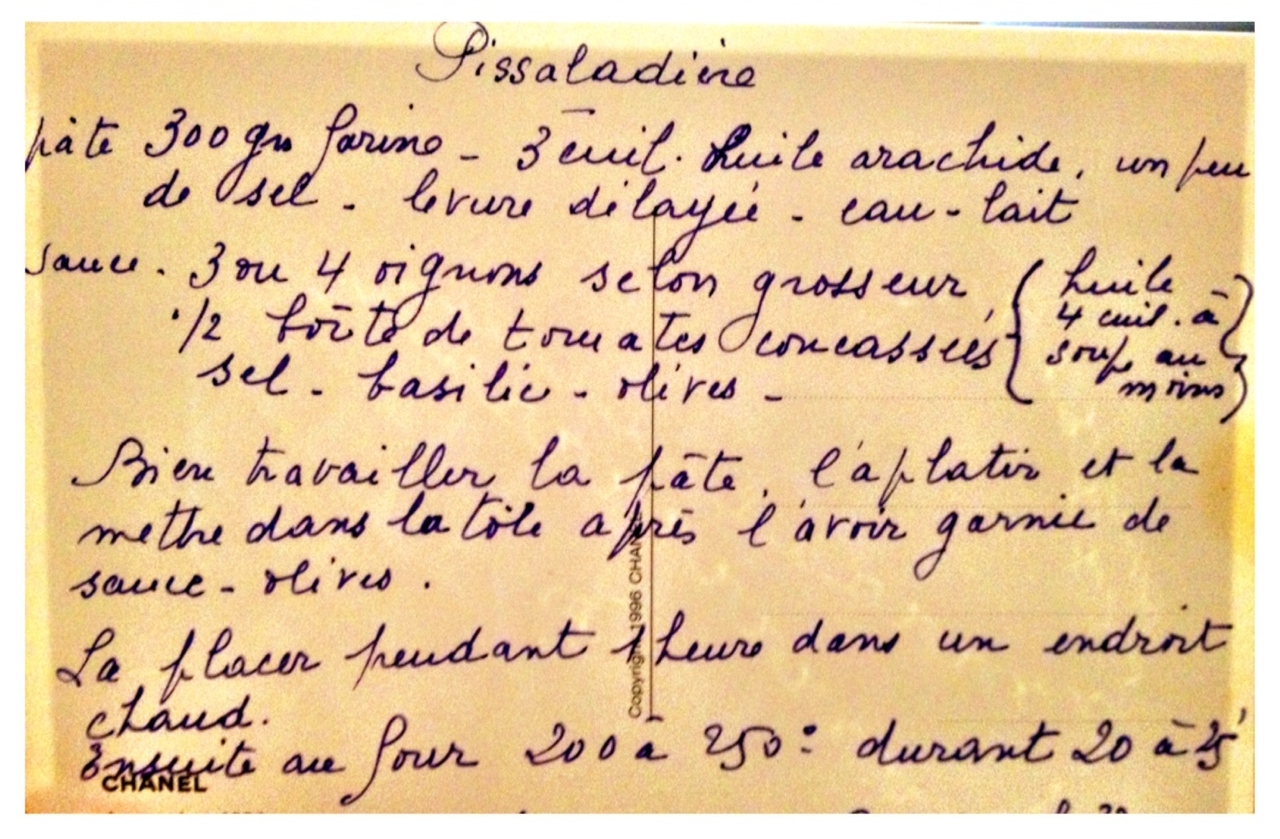 Pissaladière
pâte 300 gr farine - 3 cuil. huile arachide, un peu
de sel - levure délayée - eau - lait
sauce. 3 ou 4 oignons selon grosseur
1/2 boîte de tomates concassées
sel - basilic - olives -
( huile -
4 cuil. à
soup. au
moins )
Bien travailler la pâte, l'aplatir et la
mettre dans la tôle après l'avoir garnie de
sauce - olives.
La placer pendant 1 heure dans un endroit
chaud.
Ensuite au four 200 à 250° durant 20 à 25'
Copyright 1996 CHANEL
CHANEL